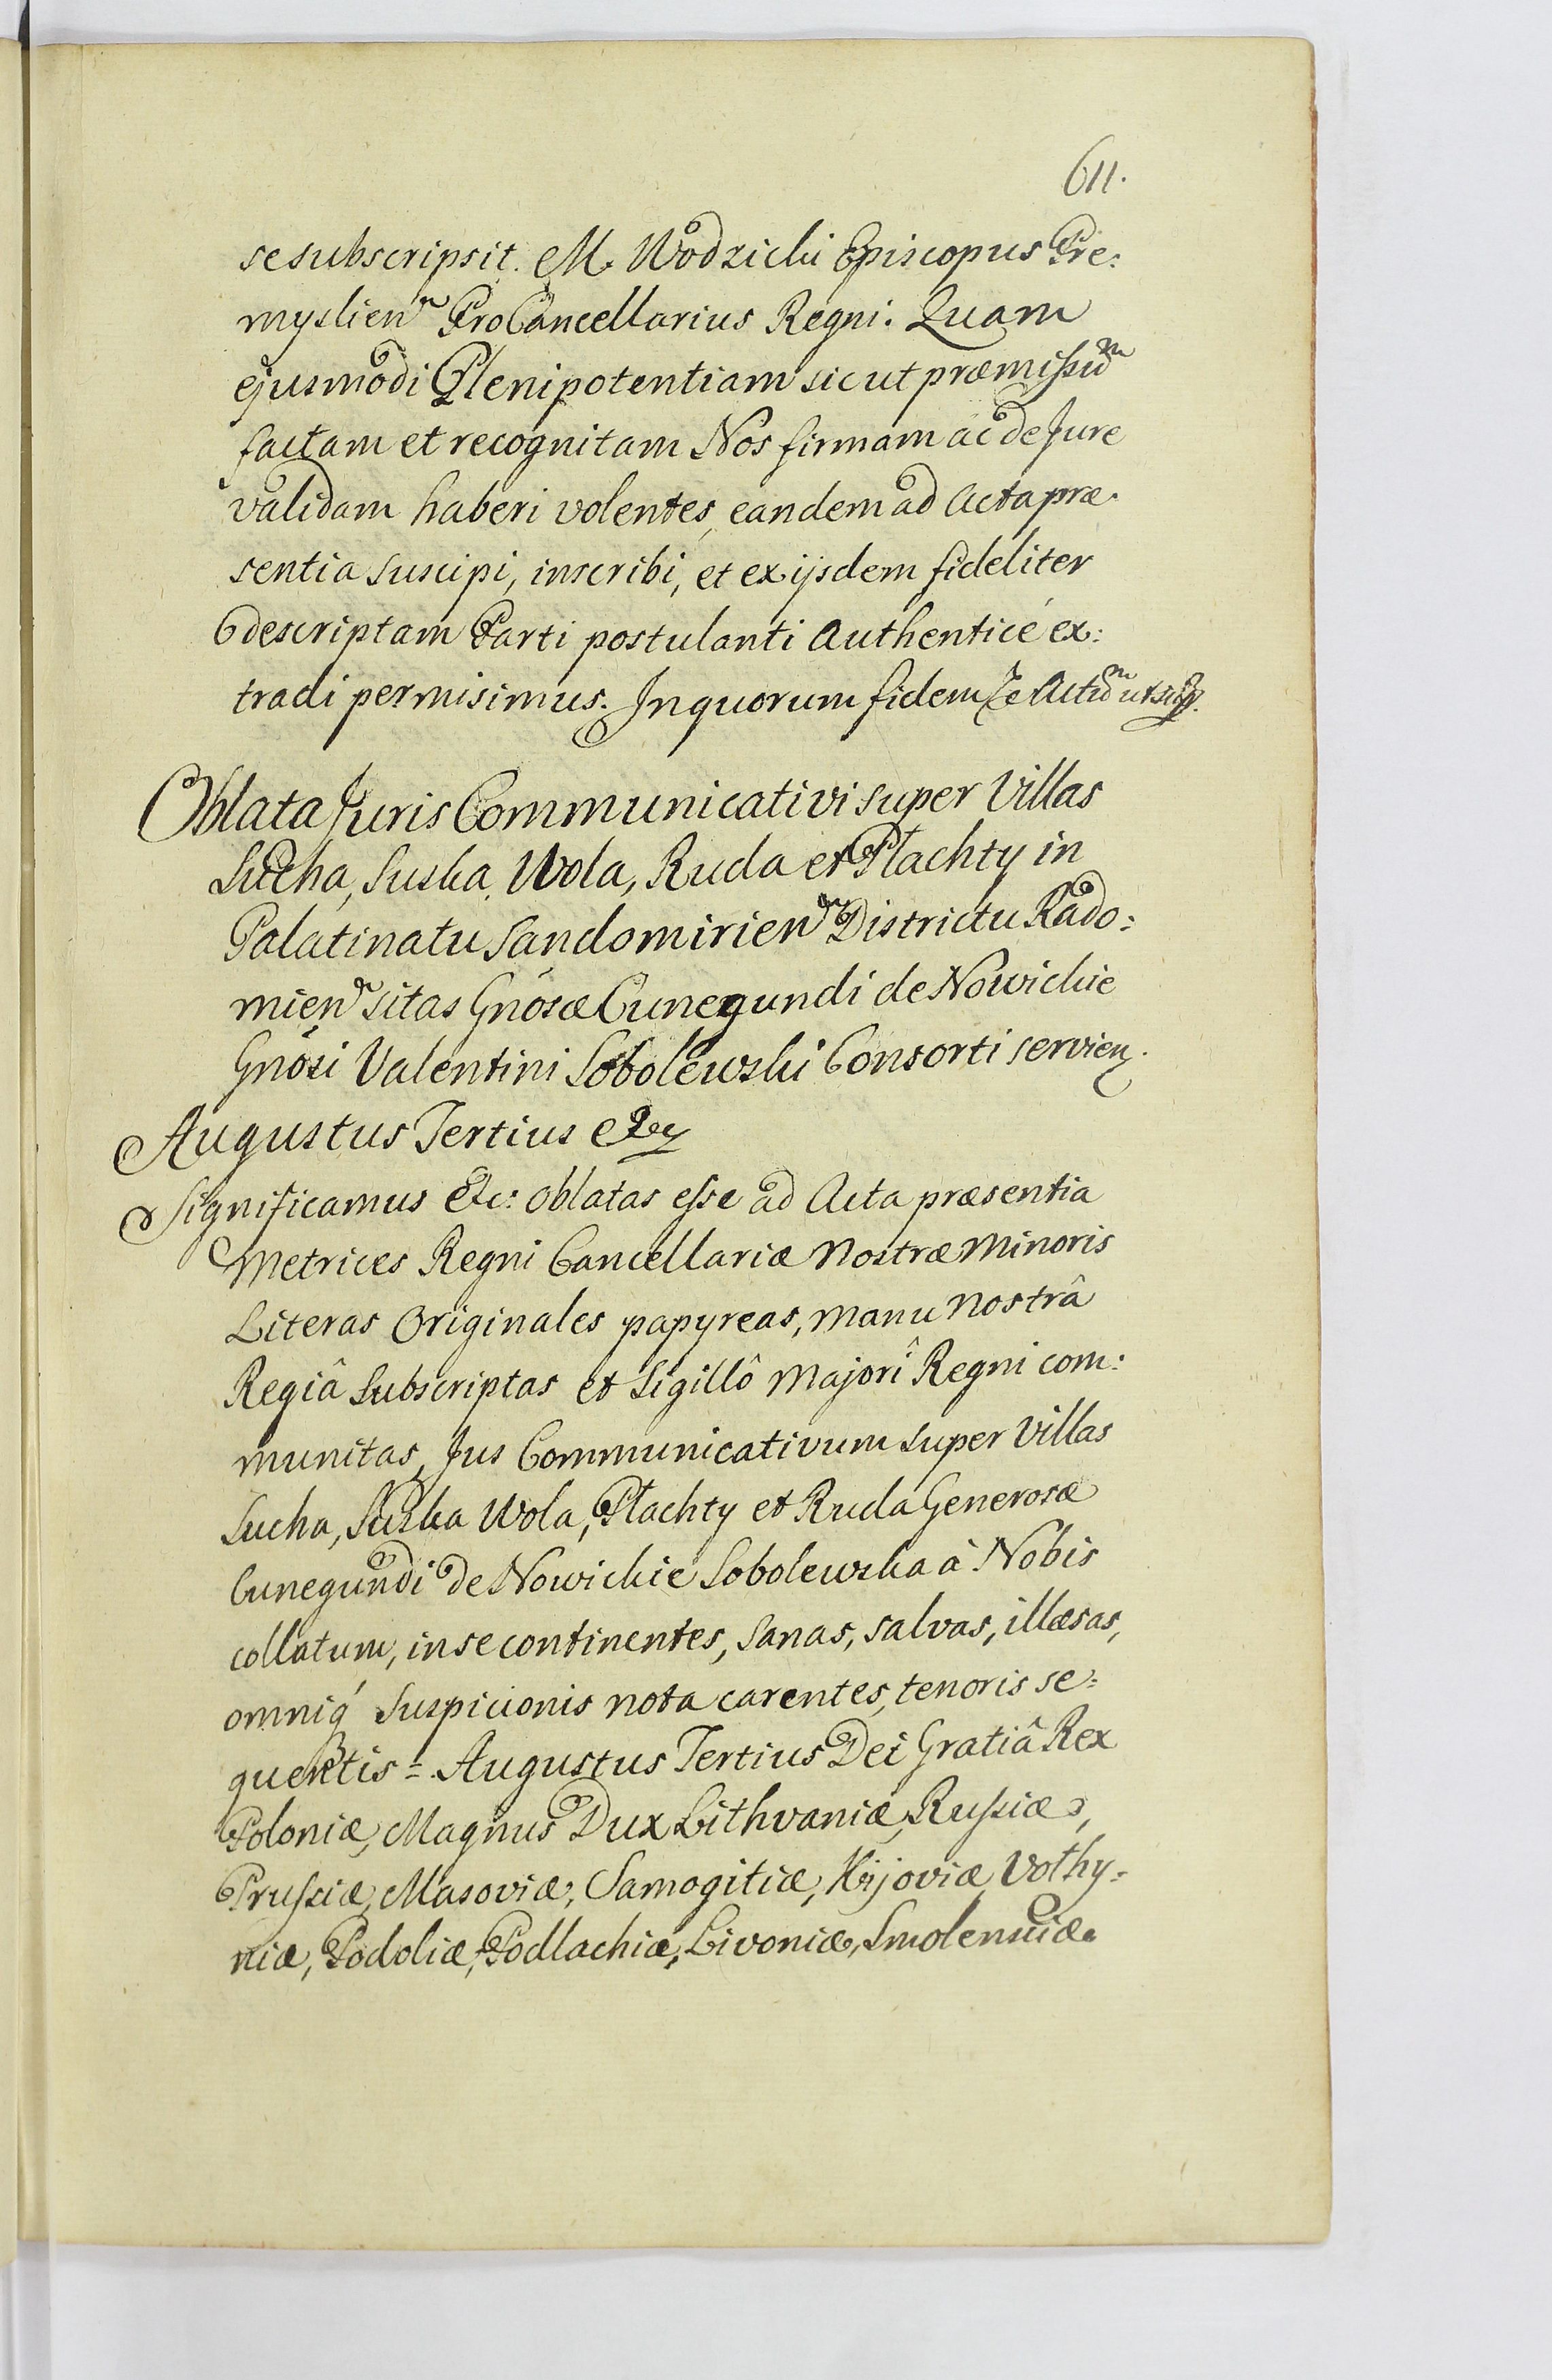 611.
se subscripsit. M. Wodzicki Episcopus Pre:
myslien Pro Cancellarius Regni. Quam
ejusmodi Plenipotentiam sicut præmissũ
factam et recognitam Nos firmam ac de Jure
validam haberi volentes, eandem ad Acta præ
sentia suscipi, inscribi, et ex ijsdem fideliter
descriptam Parti postulanti Authenticé ex:
tradi permisimus. In quorum fidem &c Actũ ut sup.
Oblata Juris Communicativi super Villas
Sucha, Suska, Wola, Ruda et Płachty in
Palatinatu Sandomirien Districtu Rado:
mien sitas Gnosæ Cunegundi de Nowickie
Gnosi Valentini Sobolewski Consorti servien.
Augustus Tertius &c
Significamus &c: Oblatas esse ad Acta præsentia
Metrices Regni Cancellariæ Nostræ Minoris
Literas Originales papyreas, Manu Nostrâ
Regiâ Subscriptas et Sigillô Majori Regni com:
munitas, Jus Communicativum super Villas
Sucha, Suska Wola, Płachty et Ruda Generosæ
Cunegundi de Nowickie Sobolewska à Nobis
collatum, in se continentes, sanas, salvas, illæsas,
omniq́ Suspicionis nota carentes, tenoris se:
quentis = Augustus Tertius Dei Gratiâ Rex
Poloniæ, Magnus Dux Lithvaniæ, Russiæ,
Prussiæ, Masoviæ, Samogitiæ, Kijoviæ Vołhy:
niæ, Podoliæ, Podlachiæ, Livoniæ, Smolensciæ